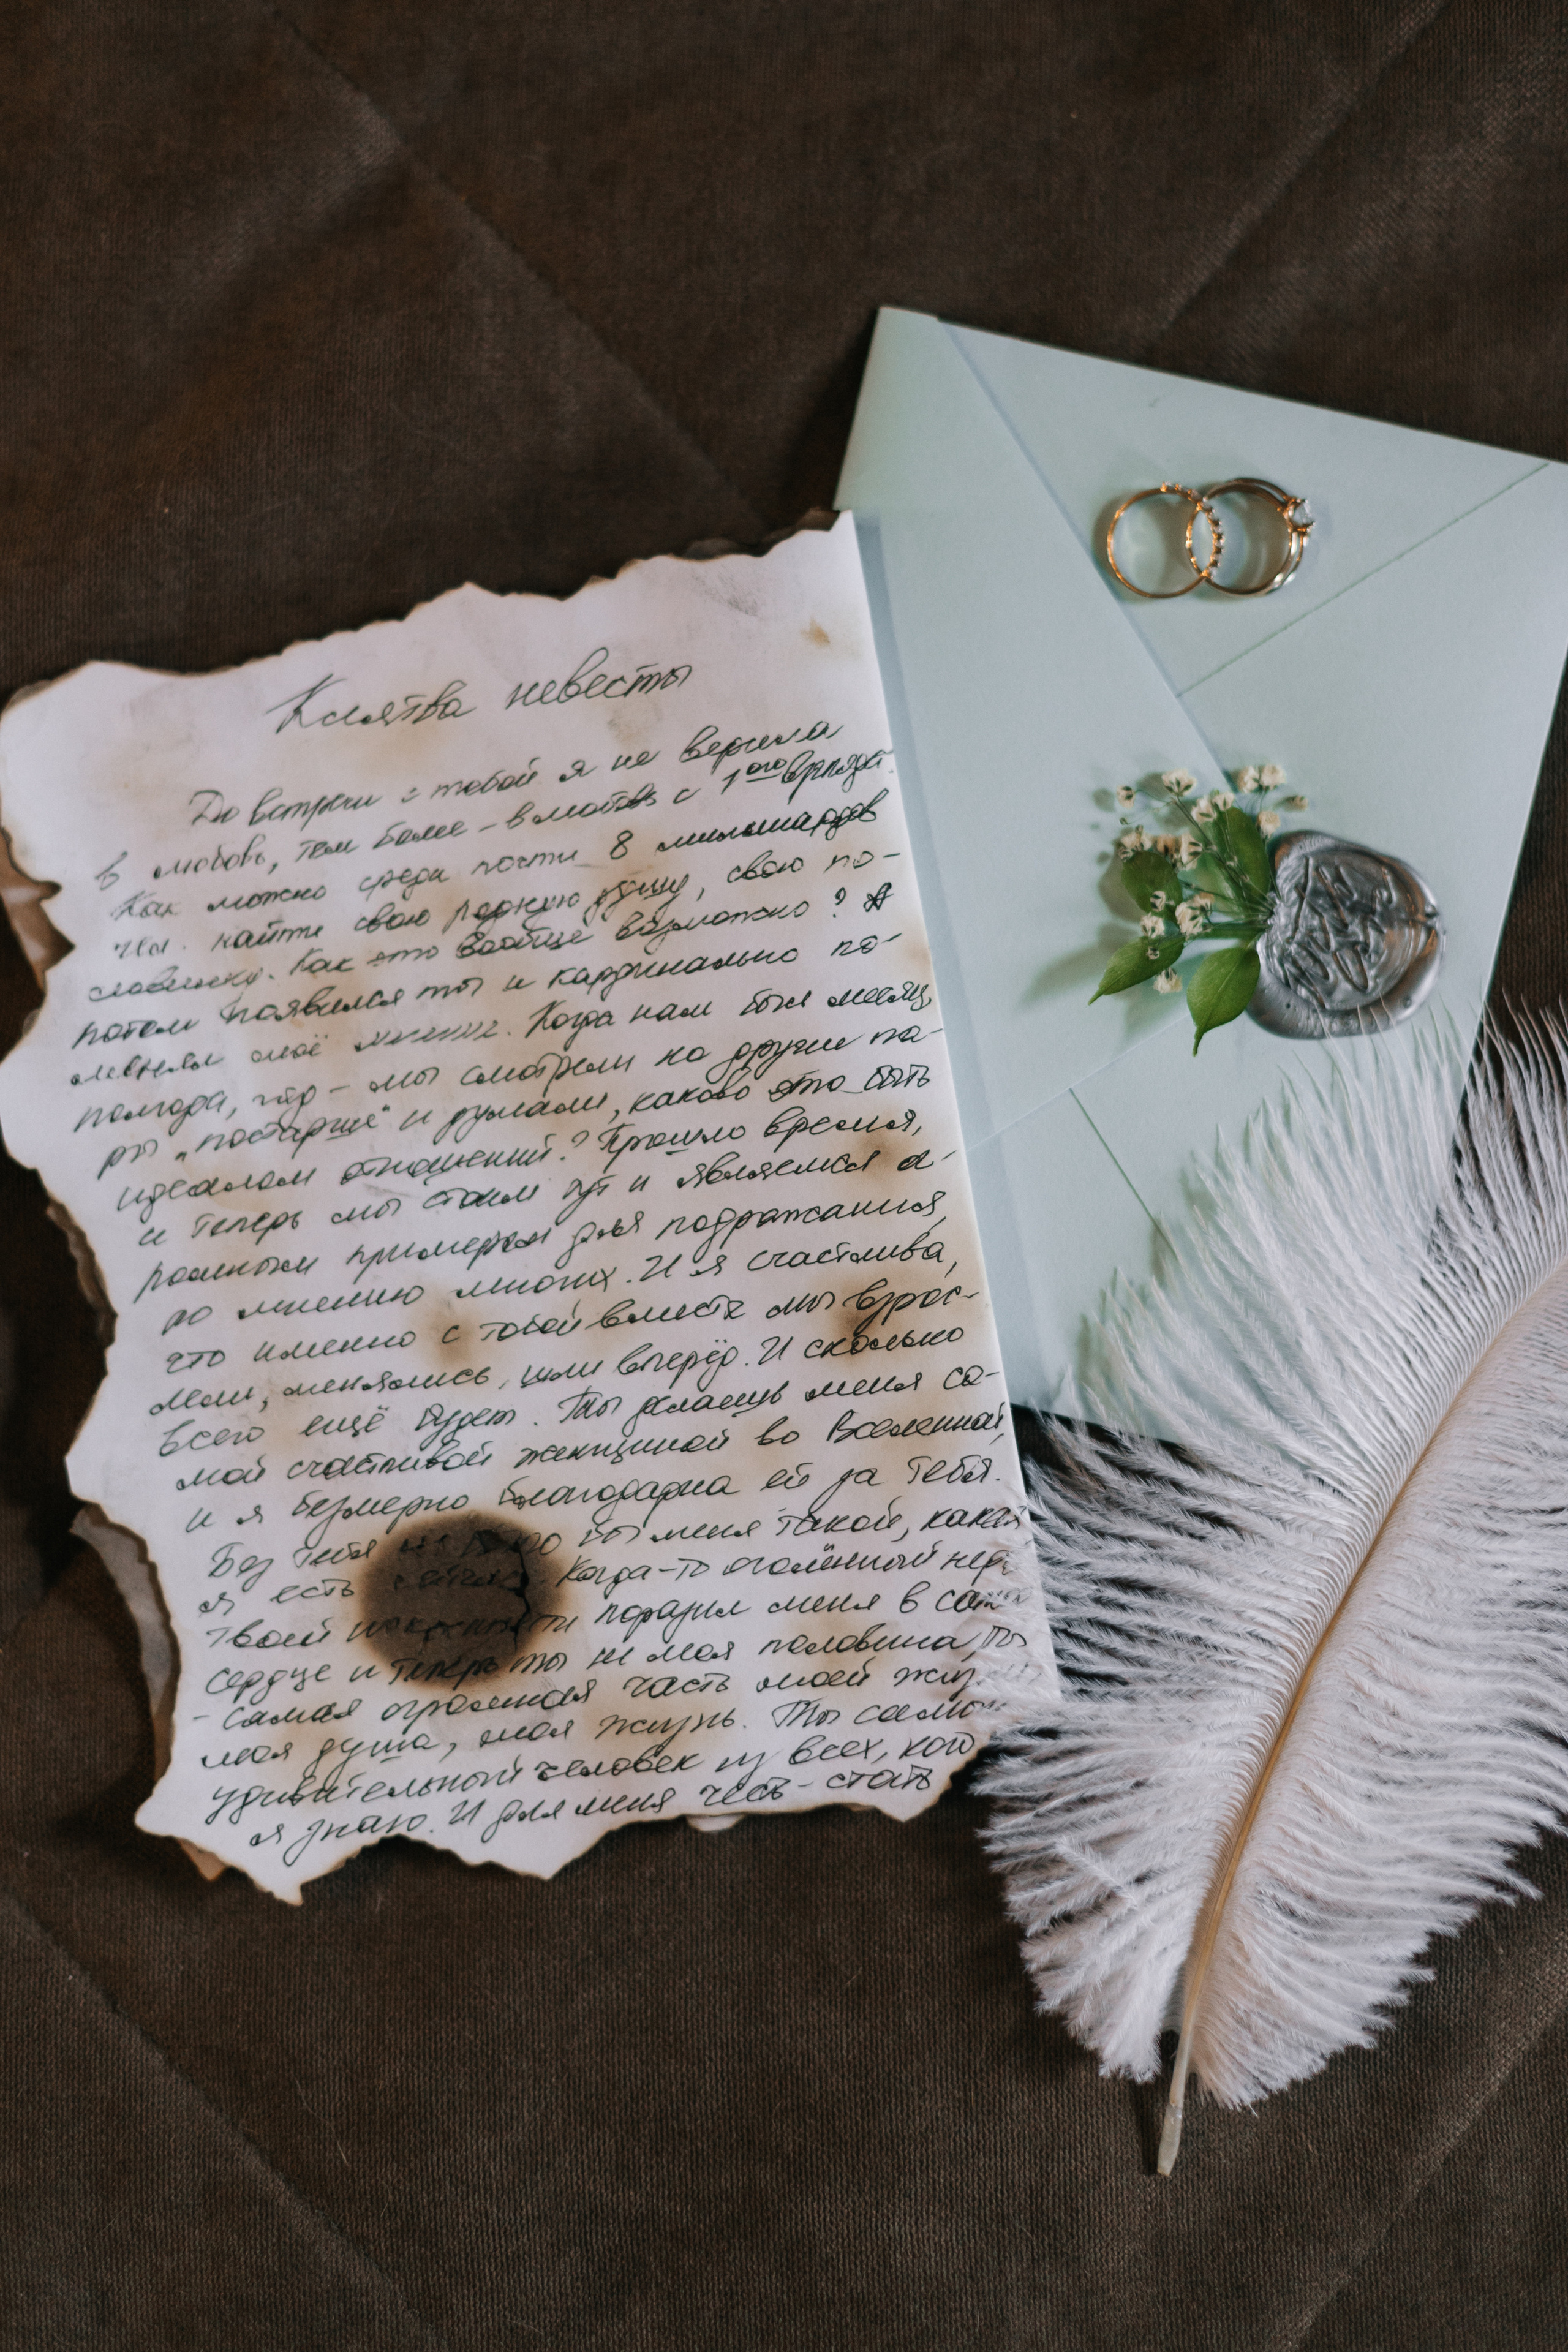 Клятва невесты
До встречи с тобой я не верила
в любовь, тем более – в любовь с 1ого взгляда.
Как можно среди почти 8 миллиардов
чел. найти свою родную душу, свою по-
ловинку. Как это вообще возможно? А
потом появился ты и кардинально по-
менял моё мнение. Когда нам был месяц,
полгода, год – мы смотрели на другие па-
ры „постарше" и думали, каково это быть
идеалом отношений? Прошло время,
и теперь мы стоим тут и являемся
примером для подражания,
по мнению многих. И я счастлива,
что именно с тобой вместе мы взрос-
лели, менялись, шли вперёд. И сколько
всего ещё будет. Ты делаешь меня са-
мой счастливой женщиной во Вселенной,
и я безмерно благодарна ей за тебя.
Без тебя не было бы меня такой, какая
я есть сейчас. Когда-то
твоей поразил меня в
сердце и теперь ты не моя половина, ты
– самая огромная часть моей
моя душа, моя жизнь. Ты
удивительный человек из всех, кого
я знаю. И для меня честь – стать